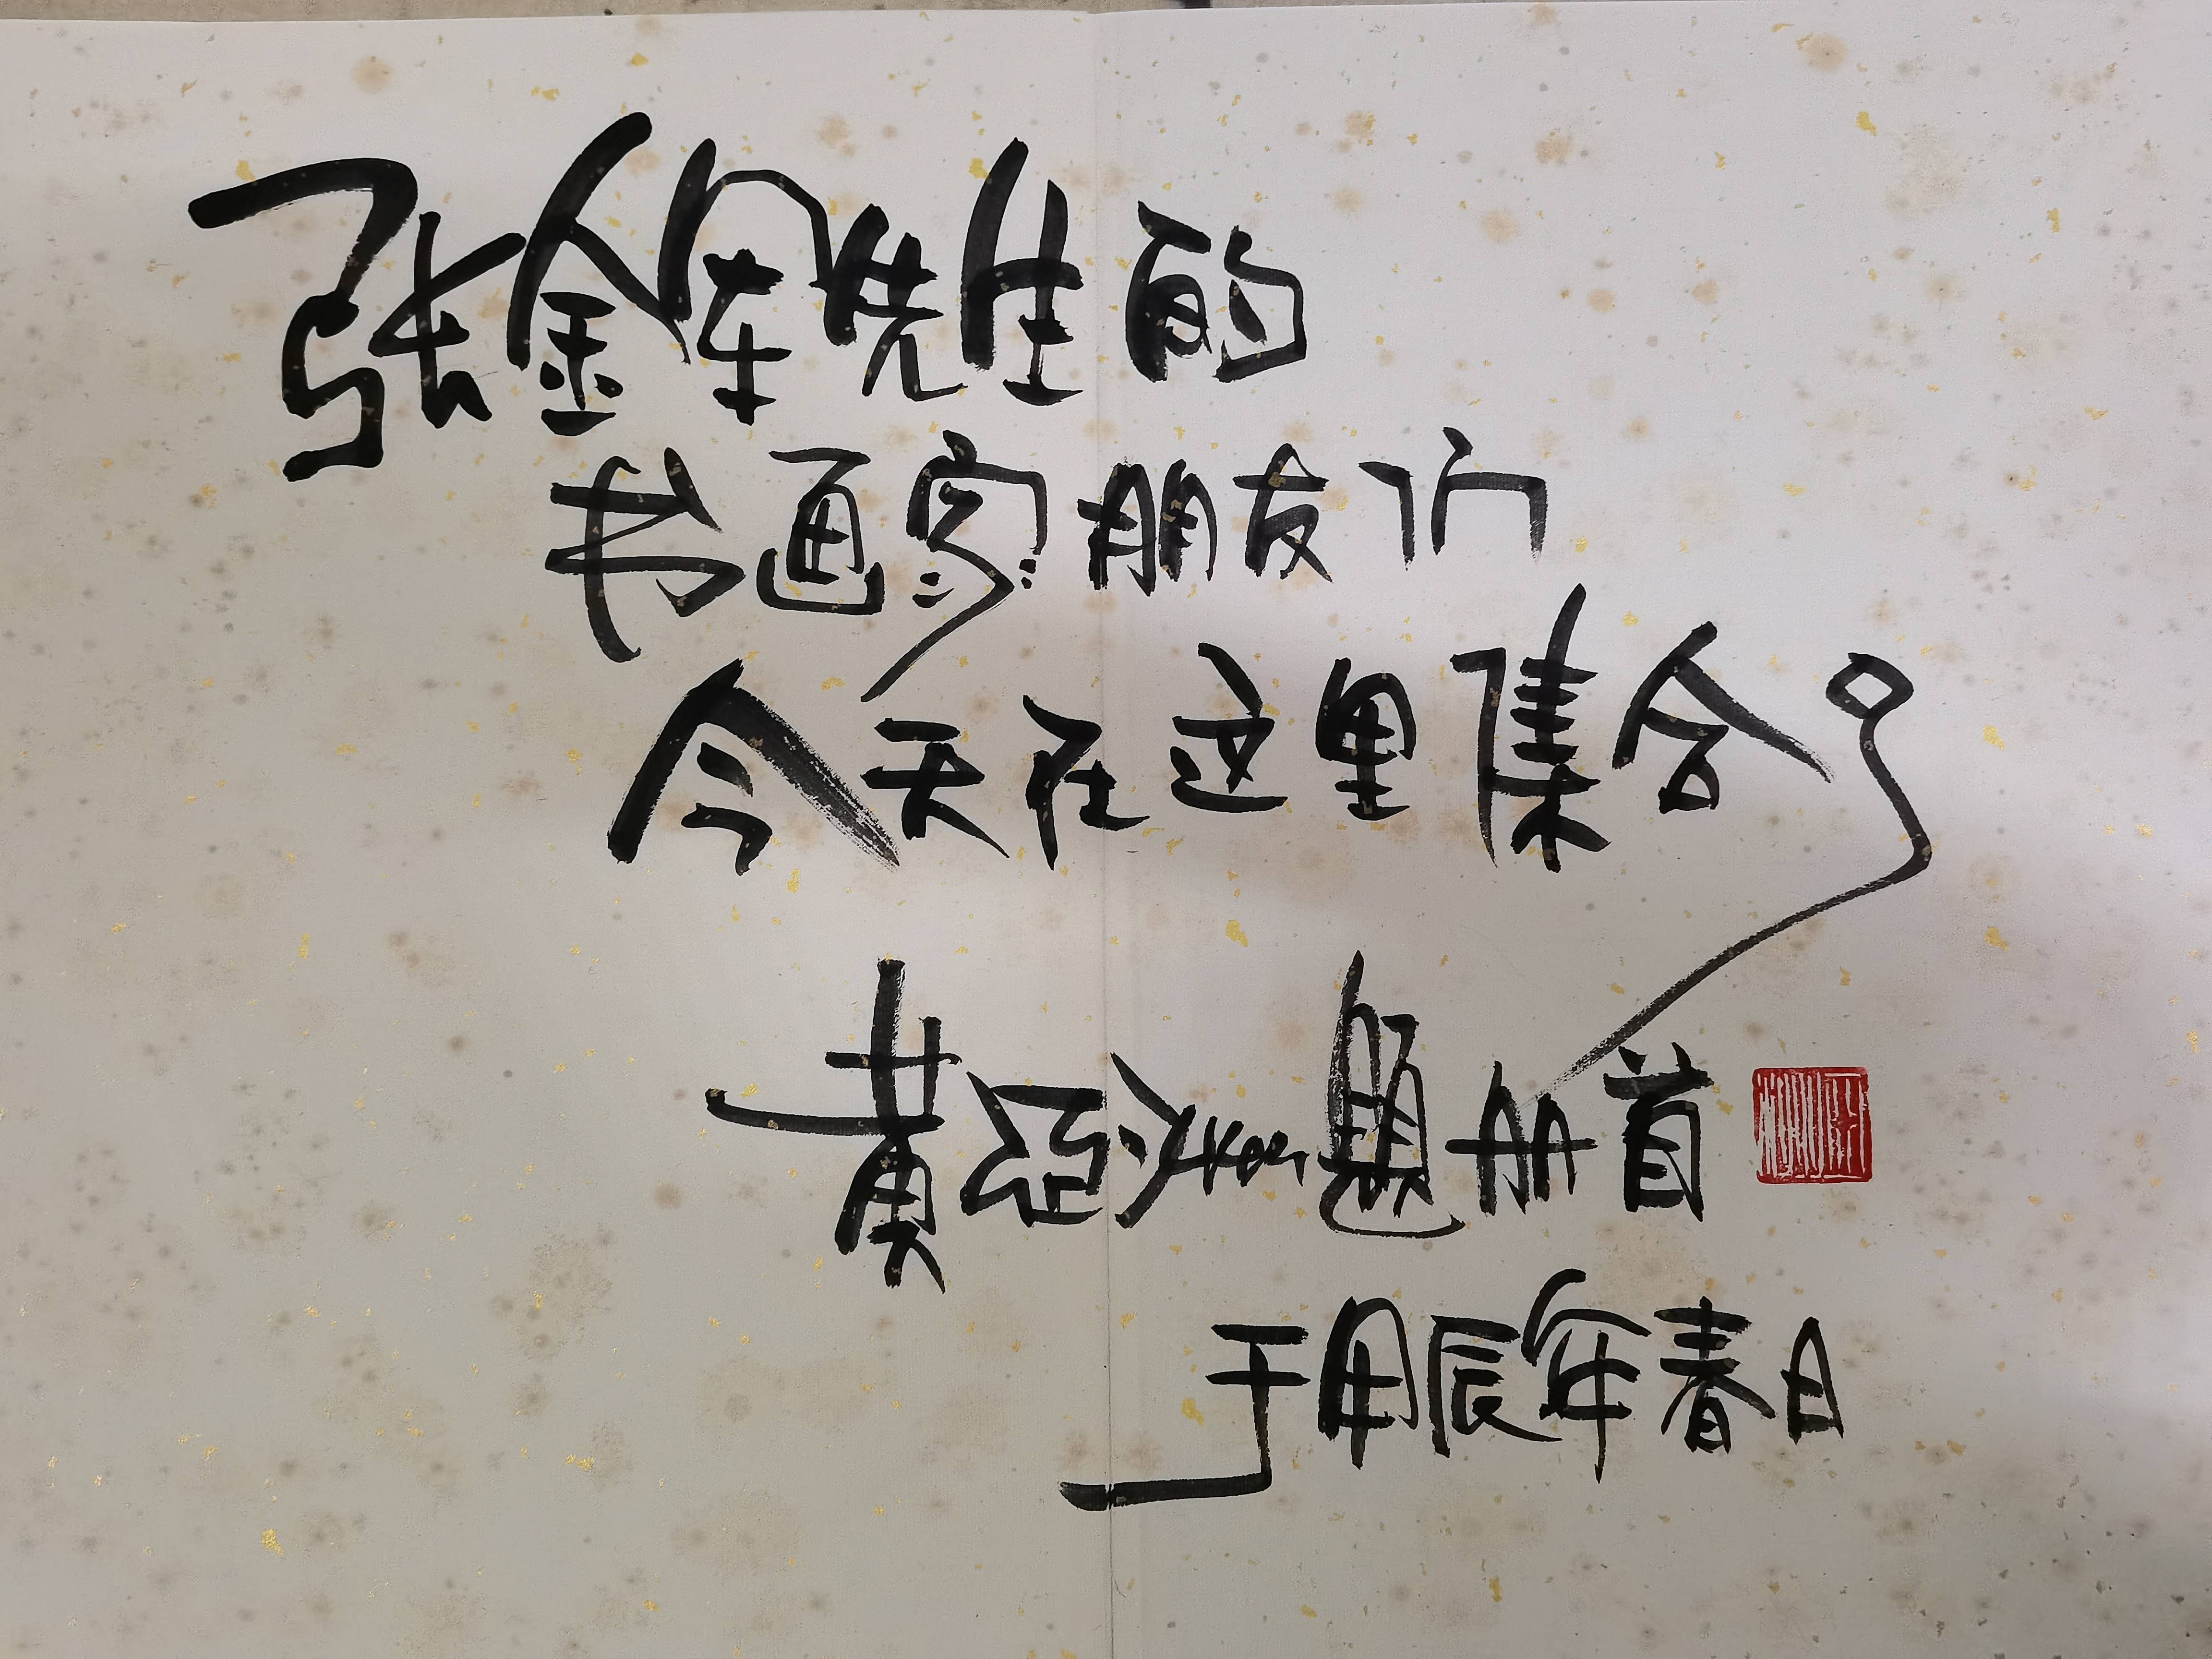 张金军先生的
书画家朋友们
今天在这里集合了
黄亚洲题册首
于甲辰年春日